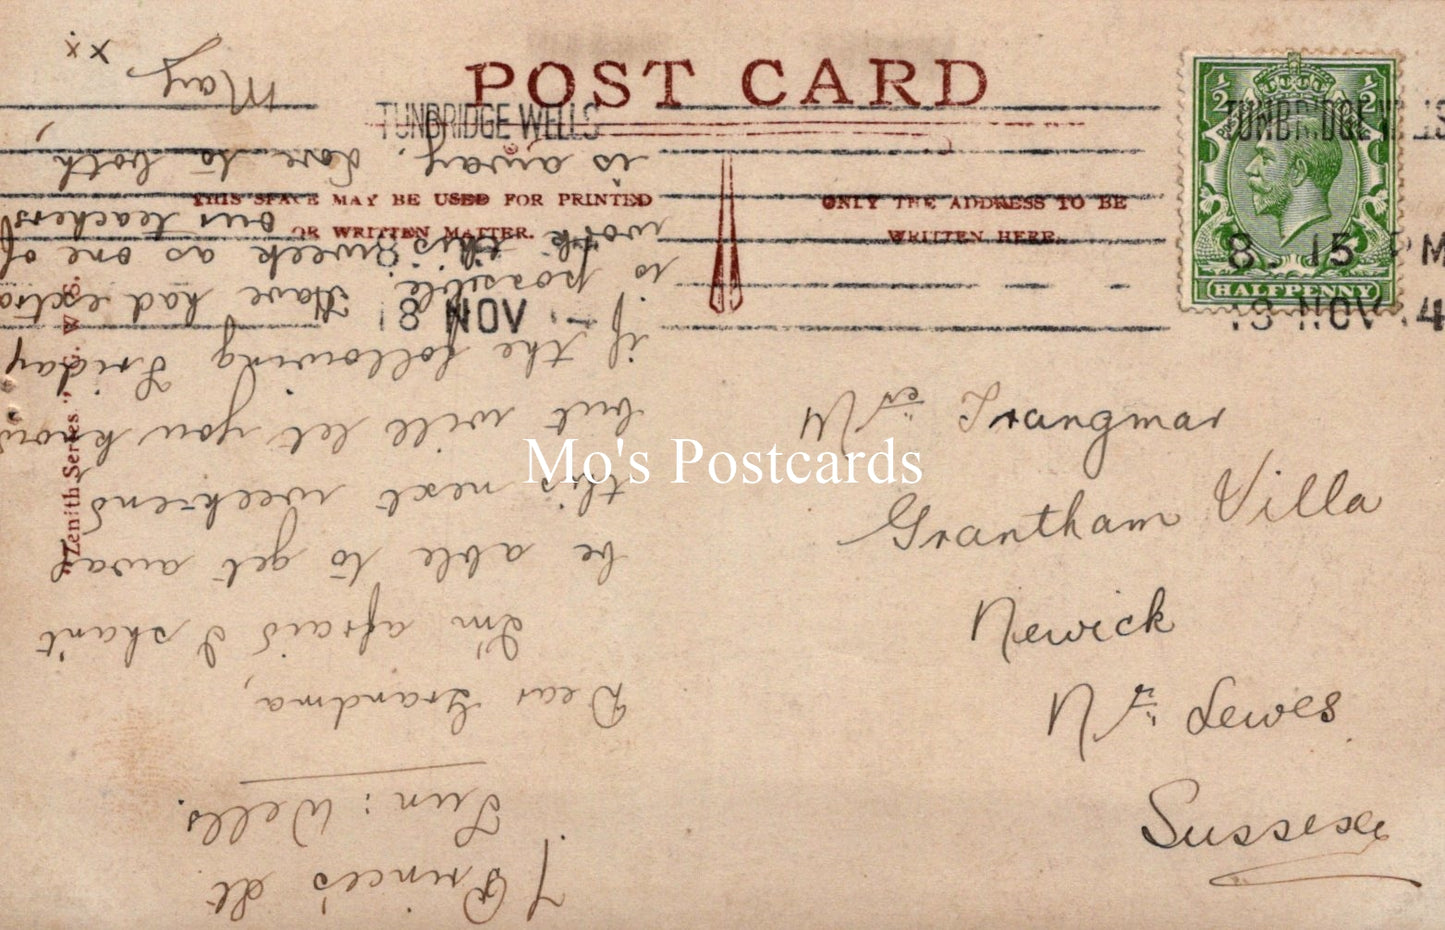 POST CARD
TUNBRIDGE WELLS
TUNBRIDGE WELLS
THIS SPACE MAY BE USED FOR PRINTED
OR WRITTEN MATTER.
ONLY THE ADDRESS TO BE
WRITTEN HERE.
8. 15 PM
18 NOV 14
18 NOV
½ ½
HALFPENNY
Mrs Trangmar
Grantham Villa
Newick
Nr. Lewes
Sussex
"Zenith Series,"
7 Prince's St
Tun: Wells.
Dear Grandma,
I'm afraid I shan't
be able to get away
this next week-end
but will let you know
if the following Friday
is possible. Have had extra
work this week as one of
our teachers
is away. Love to both,
May
x x
Mo's Postcards